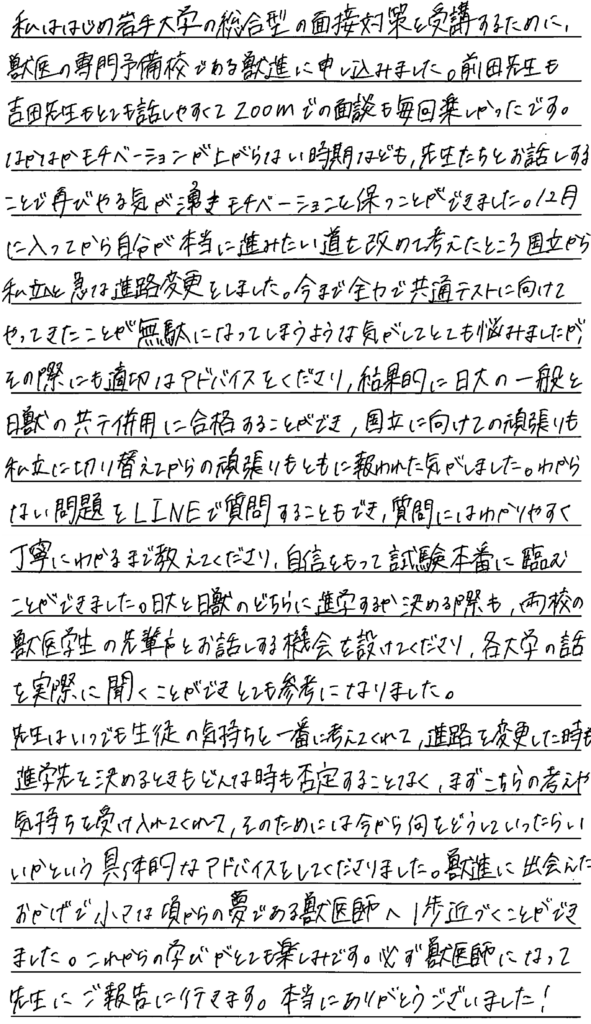 私ははじめ岩手大学の総合型の面接対策を受講するために、
獣医の専門予備校である獣進に申し込みました。前田先生も
吉田先生もとても話しやすくてzoomでの面談も毎回楽しかったです。
なかなかモチベーションが上がらない時期なども、先生たちとお話しする
ことで再びやる気が湧きモチベーションを保つことができました。12月
に入ってから自分が本当に進みたい道を改めて考えたところ国立から
私立へと急な進路変更をしました。今まで全力で共通テストに向けて
やってきたことが無駄になってしまうような気がしてとても悩みましたが、
その際にも適切なアドバイスをくださり、結果的に日大の一般と
日獣の共テ併用に合格することができ、国立に向けての頑張りも
私立に切り替えてからの頑張りもともに報われた気がしました。わから
ない問題をLINEで質問することもでき、質問にはわかりやすく
丁寧にわかるまで教えてくださり、自信をもって試験本番に臨む
ことができました。日大と日獣のどちらに進学するか決める際も、両校の
獣医学生の先輩方とお話しする機会を設けてくださり、各大学の話
を実際に聞くことができとても参考になりました。
先生はいつでも生徒の気持ちを一番に考えてくれて、進路を変更した時も
進学先を決めるときもどんな時も否定することなく、まずこちらの考えや
気持ちを受け入れてくれて、そのためには今から何をどうしていったらい
いかという具体的なアドバイスをしてくださりました。獣進に出会えた
おかげで小さな頃からの夢である獣医師へ1歩近づくことができ
ました。これからの学びがとても楽しみです。必ず獣医師になって
先生にご報告に行きます。本当にありがとうございました！